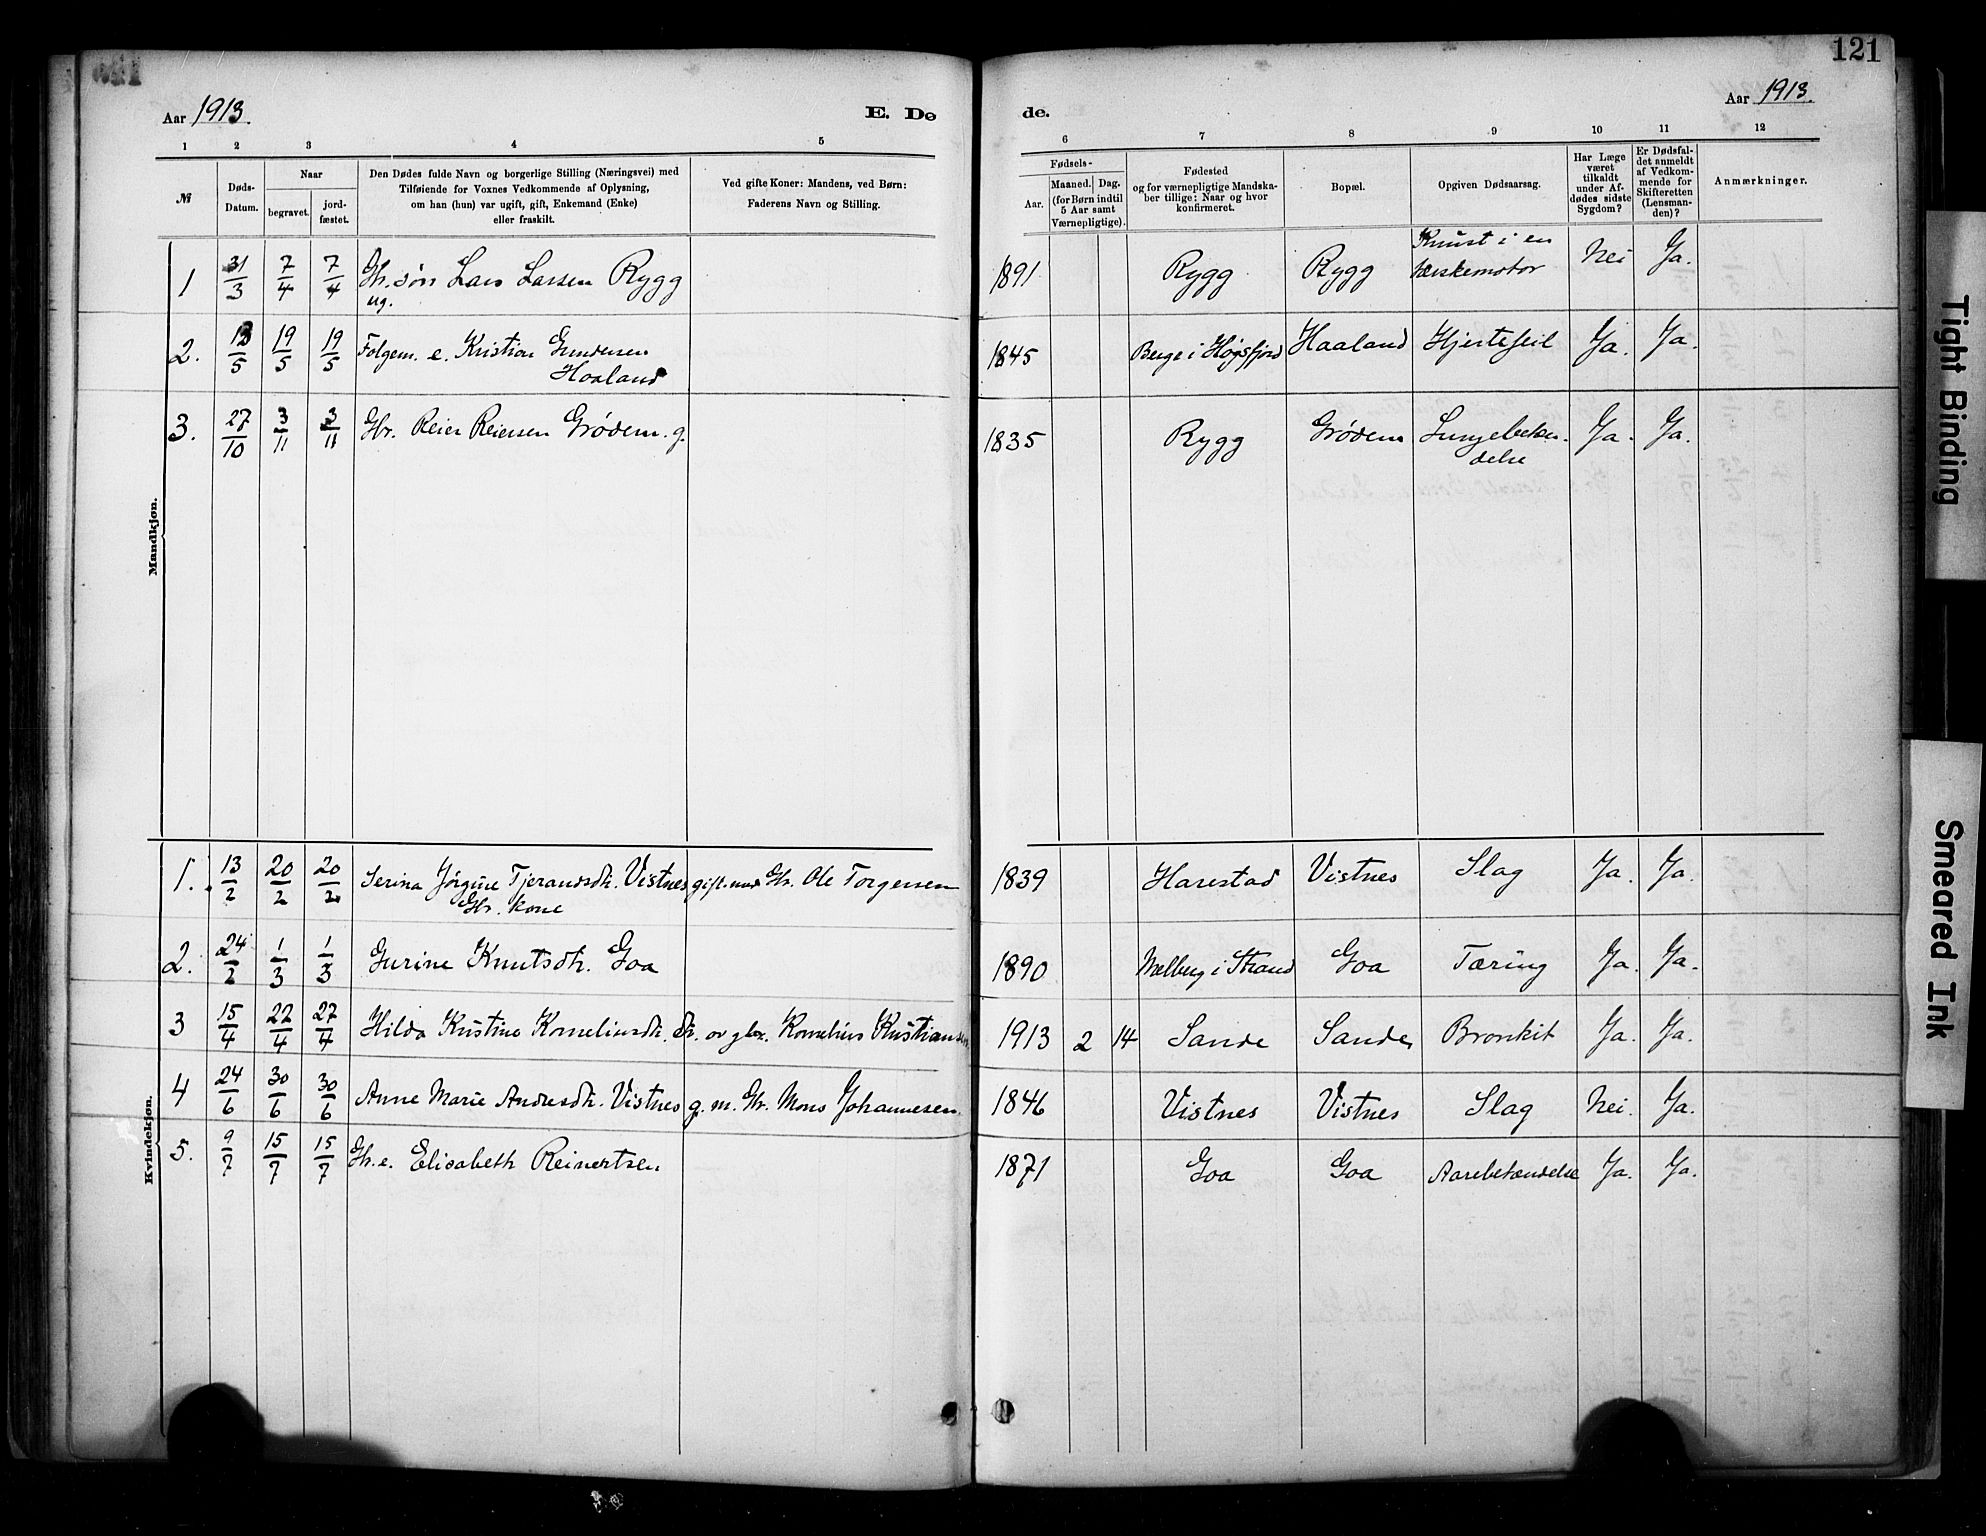 121
Aar 1913.
E. Dø
de.
Aar 1913.
1 2 3 4 5
6 7 8 9 10 11 12
№
Døds-
Datum.
Naar
begravet.
jord-
fæstet.
Den Dødes fulde Navn og borgerlige Stilling (Næringsvei) med
Tilføiende for Voxnes Vedkommende af Oplysning,
om han (hun) var ugift, gift, Enkemand (Enke)
eller fraskilt.
Ved gifte Koner: Mandens, ved Børn:
Faderens Navn og Stilling.
Fødsels-
Aar.
Maaned. Dag.
(for Børn indtil
5 Aar samt
Værnepligtige).
Fødested
og for værnepligtige Mandska-
ber tillige: Naar og hvor
konfirmeret.
Bopæl.
Opgiven Dødsaarsag.
Har Læge
været
tilkaldt
under Af-
dødes sidste
Sygdom?
Er Dødsfal-
det anmeldt
af Vedkom-
mende for
Skifteretten
(Lensman-
den)?
Anmærkninger.
Mandkjøn.
1 31/3 7/4 7/4 Gr. søn Lars Larsen Rygg 1891 Rygg Rygg Knust i en Nei Ja.
ug. tærskemotor
2. 13/5 19/5 19/5 Folgem. e. Kristian Gundersen 1845 Berge i Høgsfjord Haaland Hjertefeil Ja. Ja.
Haaland
3. 27/10 3/11 3/11 Gbr. Reier Reiersen Grødem. g. 1835 Rygg Grødem Lungebeten- Ja. Ja.
delse
Kvindekjøn.
1. 13/2 20/2 20/2 Serina Jørgine Tjerandsdt. Vistnes gift med Gr. Ole Torgersen 1839 Harestad Vistnes Slag Ja. Ja.
Gr. kone
2. 24/2 1/3 1/3 Gurine Knutsdt. Goa 1890 i Strand Goa Tæring Ja. Ja.
3 15/4 22/4 27/4 Hilda Kristine Korneliusdt. Dt. av gbr. Kornelius Kristiansen 1913 2 14 Sande Sande Bronkit Ja. Ja.
4 24/6 30/6 30/6 Anne Marie Andresdt. Vistnes g. m. Gr. Mons Johannesen. 1846 Vistnes Vistnes Slag Nei. Ja.
5. 9/7 15/7 15/7 Gr. e. Elisabeth Reinertsen 1871 Goa Goa Aarebetændelse Ja. Ja.
Tight Binding
Smeared Ink